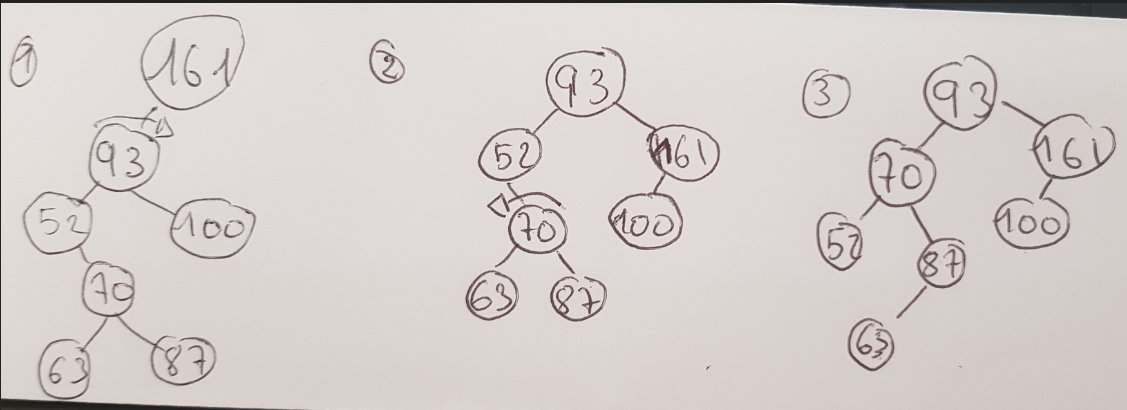 1
161
93
52
100
70
63
87
2
93
52
161
70
100
63
87
3
93
70
161
52
87
100
63